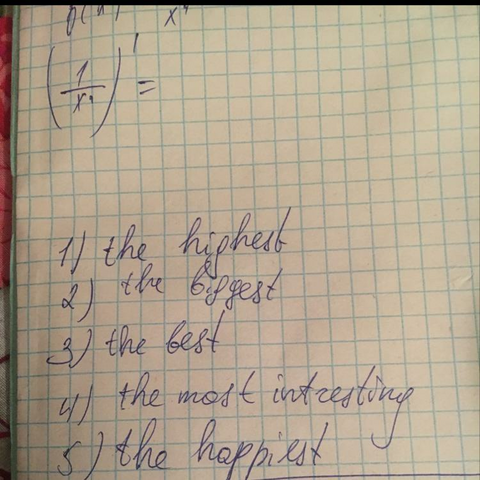 (1/x⁴)' =
1) the highest
2) the biggest
3) the best
4) the most intresting
5) the happiest